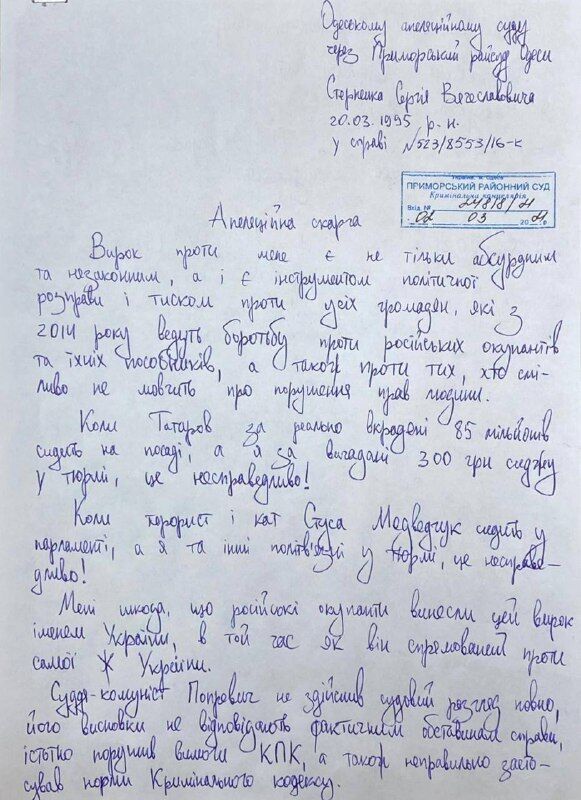 Одеському апеляційному суду
через Приморський райсуд Одеси
Стерненка Сергія Вячеславовича
20.03.1995 р.н.
у справі №523/8553/16-к
Україна м. Одеса
ПРИМОРСЬКИЙ РАЙОННИЙ СУД
Кримінальна канцелярія
Вхід №
02 03 2021
Апеляційна скарга
Вирок проти мене є не тільки абсурдним
та незаконним, а і є інструментом політичної
розправи і тиском проти усіх громадян, які з
2014 року ведуть боротьбу проти російських окупантів
та їхніх пособників, а також проти тих, хто смі-
ливо не мовчить про порушення прав людини.
Коли Татаров за реально вкрадені 85 мільйонів
сидить на посаді, а я за вигадані 300 грн сиджу
у тюрмі, це несправедливо!
Коли терорист і кат Стуса Медведчук сидить у
парламенті, а я та інші політв'язні у тюрмі, це несправе-
дливо!
Мені шкода, що російські окупанти винесли цей вирок
іменем України, в той час як він спрямований проти
самої Ж України.
Суддя-комуніст Попревич не здійснив судовий розгляд повно,
його висновки не відповідають фактичним обставинам справи,
істотно порушив вимоги КПК, а також неправильно засто-
сував норми Кримінального кодексу.